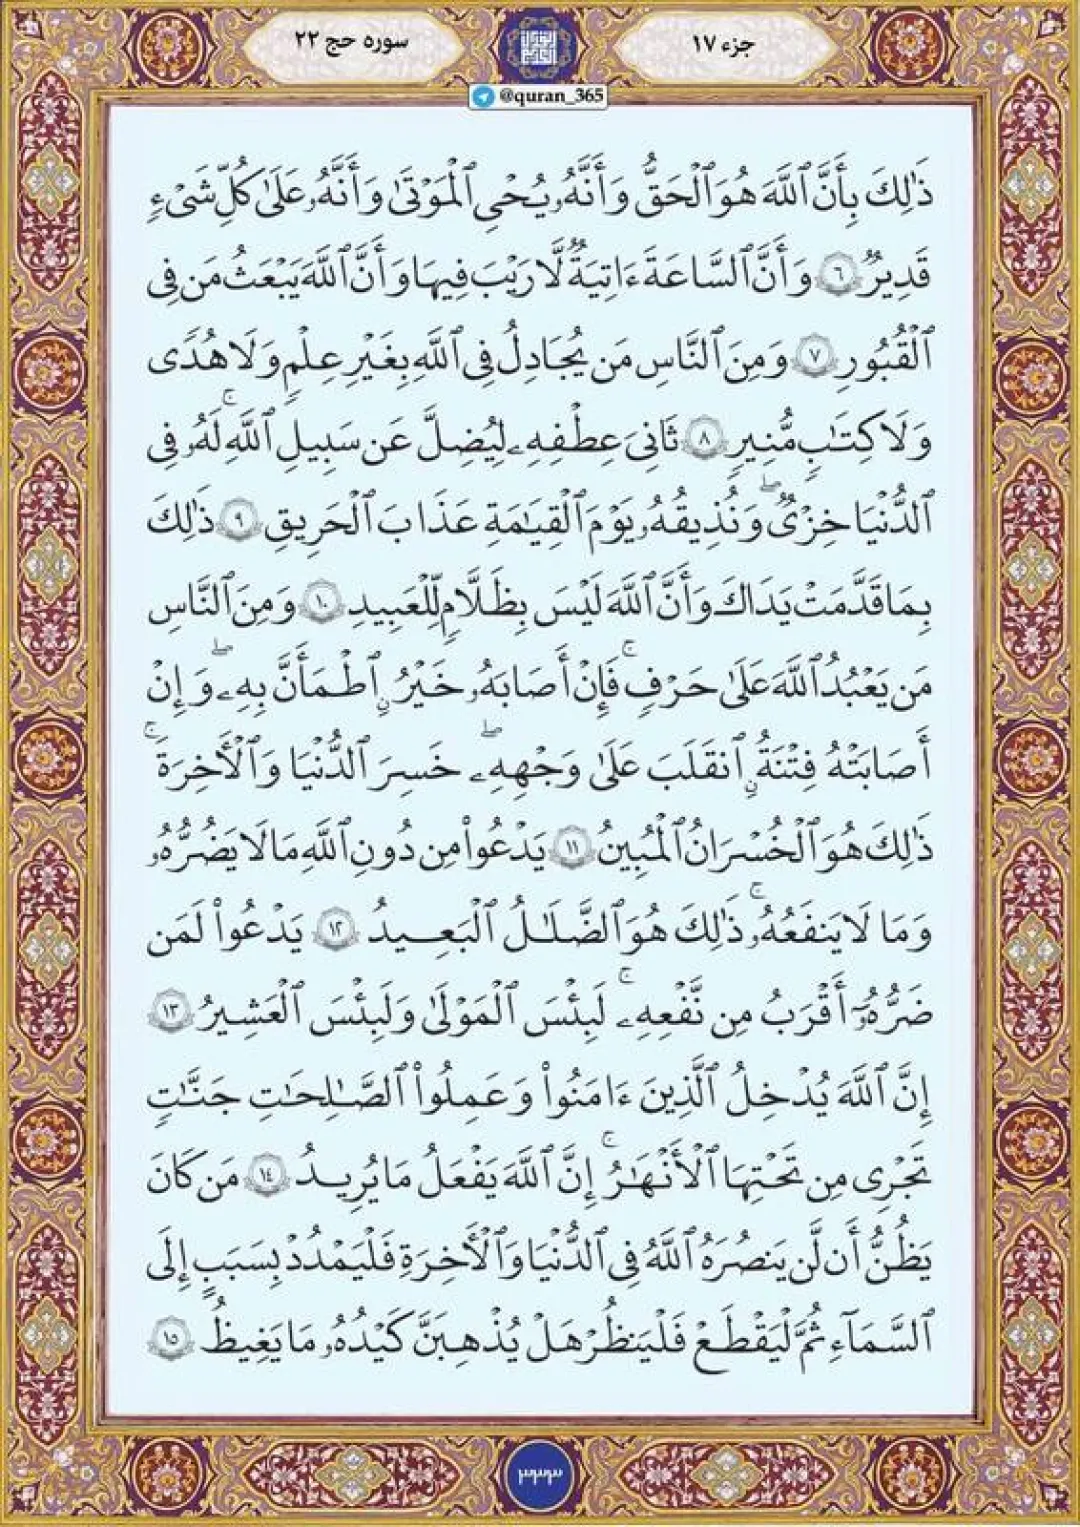 جزء ۱۷
سوره حج ۲۲
@quran_365
ذَٰلِكَ بِأَنَّ ٱللَّهَ هُوَ ٱلْحَقُّ وَأَنَّهُۥ يُحْىِ ٱلْمَوْتَىٰ وَأَنَّهُۥ عَلَىٰ كُلِّ شَىْءٍ
قَدِيرٌ ٦ وَأَنَّ ٱلسَّاعَةَ ءَاتِيَةٌ لَّا رَيْبَ فِيهَا وَأَنَّ ٱللَّهَ يَبْعَثُ مَن فِى
ٱلْقُبُورِ ٧ وَمِنَ ٱلنَّاسِ مَن يُجَادِلُ فِى ٱللَّهِ بِغَيْرِ عِلْمٍ وَلَا هُدًى
وَلَا كِتَٰبٍ مُّنِيرٍ ٨ ثَانِىَ عِطْفِهِۦ لِيُضِلَّ عَن سَبِيلِ ٱللَّهِ ۚ لَهُۥ فِى
ٱلدُّنْيَا خِزْىٌ ۖ وَنُذِيقُهُۥ يَوْمَ ٱلْقِيَٰمَةِ عَذَابَ ٱلْحَرِيقِ ٩ ذَٰلِكَ
بِمَا قَدَّمَتْ يَدَاكَ وَأَنَّ ٱللَّهَ لَيْسَ بِظَلَّٰمٍ لِّلْعَبِيدِ ١٠ وَمِنَ ٱلنَّاسِ
مَن يَعْبُدُ ٱللَّهَ عَلَىٰ حَرْفٍ ۖ فَإِنْ أَصَابَهُۥ خَيْرٌ ٱطْمَأَنَّ بِهِۦ ۖ وَإِنْ
أَصَابَتْهُ فِتْنَةٌ ٱنقَلَبَ عَلَىٰ وَجْهِهِۦ ۖ خَسِرَ ٱلدُّنْيَا وَٱلْأَخِرَةَ ۚ
ذَٰلِكَ هُوَ ٱلْخُسْرَانُ ٱلْمُبِينُ ١١ يَدْعُوا۟ مِن دُونِ ٱللَّهِ مَا لَا يَضُرُّهُۥ
وَمَا لَا يَنفَعُهُۥ ۚ ذَٰلِكَ هُوَ ٱلضَّلَٰلُ ٱلْبَعِيدُ ١٢ يَدْعُوا۟ لَمَن
ضَرُّهُۥٓ أَقْرَبُ مِن نَّفْعِهِۦ ۚ لَبِئْسَ ٱلْمَوْلَىٰ وَلَبِئْسَ ٱلْعَشِيرُ ١٣
إِنَّ ٱللَّهَ يُدْخِلُ ٱلَّذِينَ ءَامَنُوا۟ وَعَمِلُوا۟ ٱلصَّٰلِحَٰتِ جَنَّٰتٍ
تَجْرِى مِن تَحْتِهَا ٱلْأَنْهَٰرُ ۚ إِنَّ ٱللَّهَ يَفْعَلُ مَا يُرِيدُ ١٤ مَن كَانَ
يَظُنُّ أَن لَّن يَنصُرَهُ ٱللَّهُ فِى ٱلدُّنْيَا وَٱلْأَخِرَةِ فَلْيَمْدُدْ بِسَبَبٍ إِلَى
ٱلسَّمَآءِ ثُمَّ لْيَقْطَعْ فَلْيَنظُرْ هَلْ يُذْهِبَنَّ كَيْدُهُۥ مَا يَغِيظُ ١٥
۳۳۳